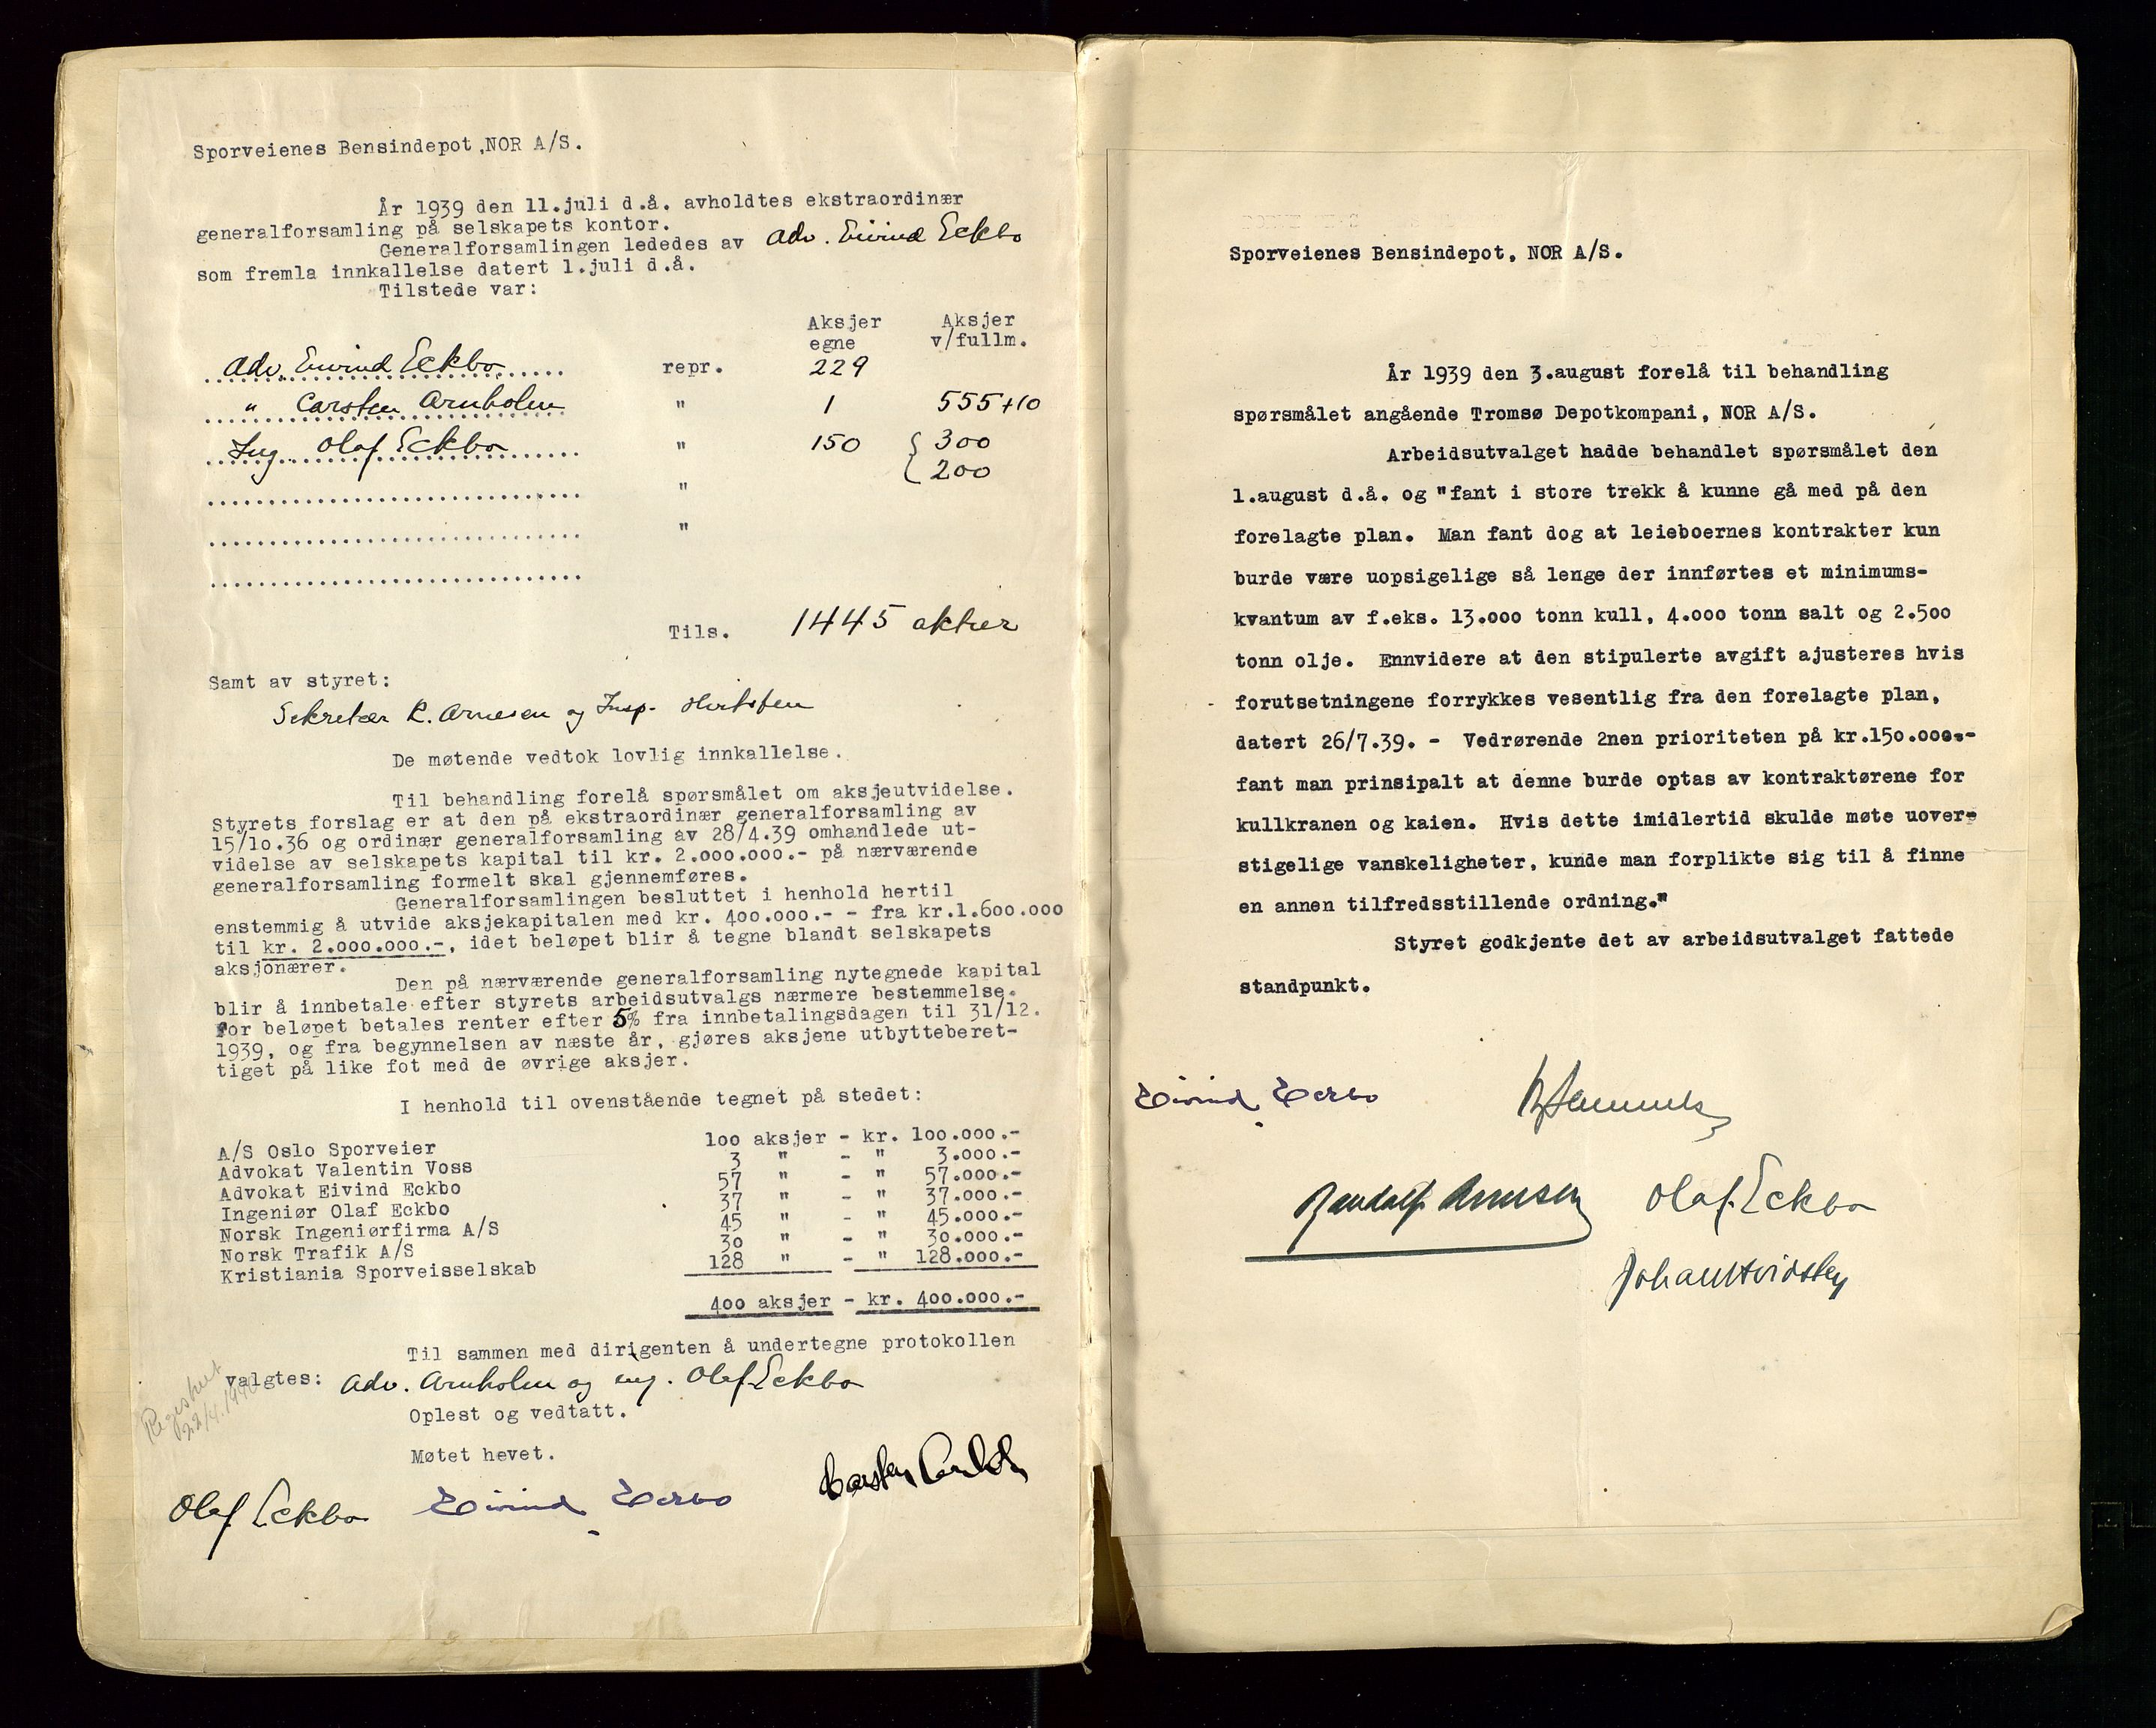 Sporveienes Bensindepot,NOR A/S.
År 1939 den 11.juli d.å. avholdtes ekstraordinær
generalforsamling på selskapets kontor.
Generalforsamlingen lededes av Adv. Eivind Eckbo
som fremla innkallelse datert 1.juli d.å.
Tilstede var:
Aksjer Aksjer
egne v/fullm.
Adv. Eivind Eckbo repr. 229
" Carsten Arnholm " 1 555+10
Ing. Olaf Eckbo " 150 { 300
{ 200
"
"
Tils. 1445 aktier
Samt av styret:
Sekretær R. Arnesen og Insp.
De møtende vedtok lovlig innkallelse.
Til behandling forelå spørsmålet om aksjeutvidelse.
Styrets forslag er at den på ekstraordinær generalforsamling av
15/10.36 og ordinær generalforsamling av 28/4.39 omhandlede ut-
videlse av selskapets kapital til kr. 2.000.000.- på nærværende
generalforsamling formelt skal gjennemføres.
Generalforsamlingen besluttet i henhold hertil
enstemmig å utvide aksjekapitalen med kr. 400.000.- - fra kr.1.600.000
til kr. 2.000.000.-, idet beløpet blir å tegne blandt selskapets
aksjonærer.
Den på nærværende generalforsamling nytegnede kapital
blir å innbetale efter styrets arbeidsutvalgs nærmere bestemmelse.
For beløpet betales renter efter 5% fra innbetalingsdagen til 31/12.
1939, og fra begynnelsen av næste år, gjøres aksjene utbytteberet-
tiget på like fot med de øvrige aksjer.
I henhold til ovenstående tegnet på stedet:
A/S Oslo Sporveier 100 aksjer - kr. 100.000.-
Advokat Valentin Voss 3 " - " 3.000.-
Advokat Eivind Eckbo 57 " - " 57.000.-
Ingeniør Olaf Eckbo 37 " - " 37.000.-
Norsk Ingeniørfirma A/S 45 " - " 45.000.-
Norsk Trafik A/S 30 " - " 30.000.-
Kristiania Sporveisselskab 128 " - " 128.000.-
400 aksjer - kr. 400.000.-
Til sammen med dirigenten å undertegne protokollen
valgtes: Adv. Arnholm og ing. Olaf Eckbo
Oplest og vedtatt.
Møtet hevet.
Olaf Eckbo Eivind Eckbo Carsten Arnholm
Sporveienes Bensindepot, NOR A/S.
År 1939 den 3.august forelå til behandling
spørsmålet angående Tromsø Depotkompani, NOR A/S.
Arbeidsutvalget hadde behandlet spørsmålet den
1.august d.å. og "fant i store trekk å kunne gå med på den
forelagte plan. Man fant dog at leieboernes kontrakter kun
burde være uopsigelige så lenge der innførtes et minimums-
kvantum av f.eks. 13.000 tonn kull, 4.000 tonn salt og 2.500
tonn olje. Ennvidere at den stipulerte avgift ajusteres hvis
forutsetningene forrykkes vesentlig fra den forelagte plan,
datert 26/7.39. - Vedrørende 2nen prioriteten på kr.150.000.-
fant man prinsipalt at denne burde optas av kontraktørene for
kullkranen og kaien. Hvis dette imidlertid skulde møte uover-
stigelige vanskeligheter, kunde man forplikte sig til å finne
en annen tilfredsstillende ordning."
Styret godkjente det av arbeidsutvalget fattede
standpunkt.
Eivind Eckbo
Randolf Arnesen Olaf Eckbo